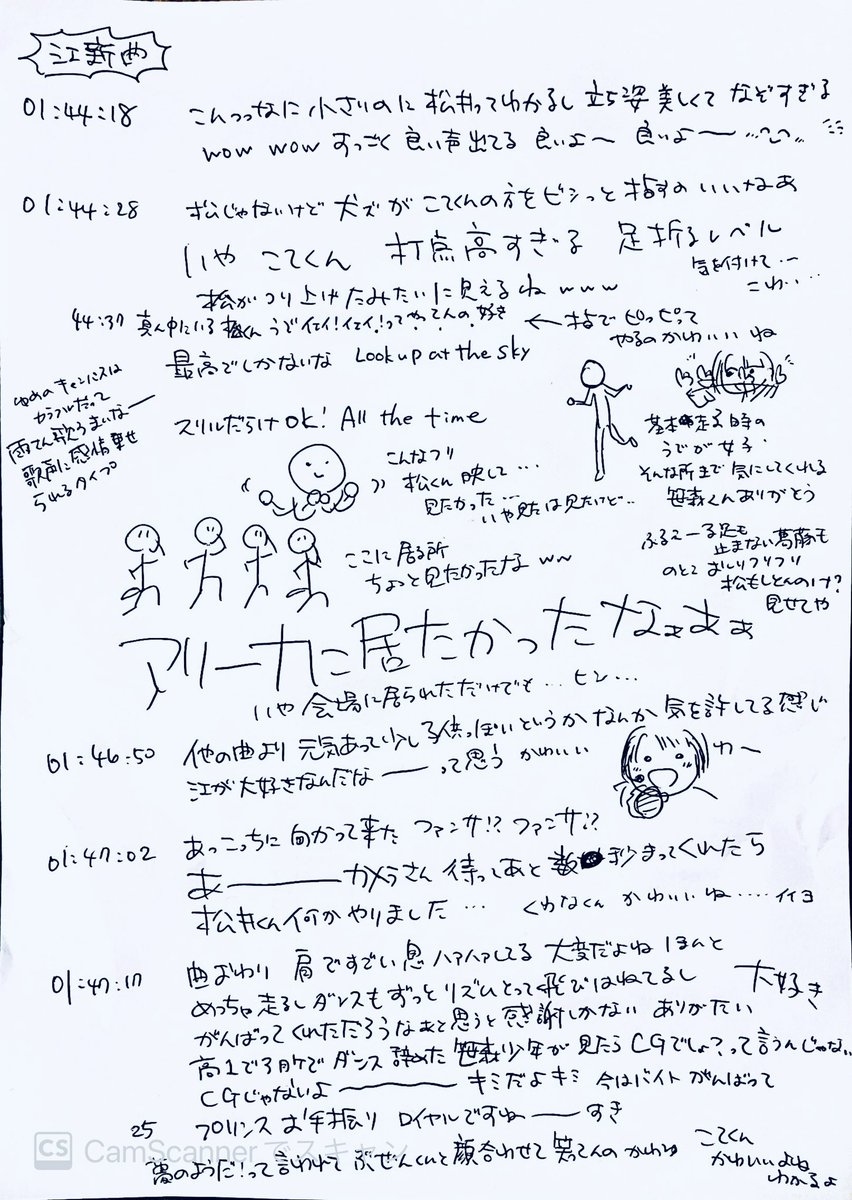 江新曲
01:44:18 こんっっなに小さいのに松井ってわかるし立ち姿美しくてなぞすぎる
wow wow すっごく良い声出てる 良いよ〜 良いよ〜
01:44:28 松じゃないけど犬ズがこてくんの方をビシっと指すのいいなぁ
いや こてくん 打点高すぎる 足折るレベル
気を付けて…
こわ…
松がつり上げたみたいに見えるねwww
44:37 真ん中にいる松くんうでイェイ!イェイ!ってやってんの好き
← 指でピッピッて
やるのかわいいね
最高でしかないな Look up at the sky
ゆめのキャンバスは
カラフルだって
雨さん歌うまいなー
歌声に感情乗せ
られるタイプ
スリルだらけ OK! All the time
こんなフリ
松くん映して…
見たかった…
いや見たは見たけど…
基本走る時の
うでが女子
そんな所まで気にしてくれる
笹森くんありがとう
ここに居る所
ちょっと見たかったなww
ふるえーる足も
止まない葛藤も
のとこ おしりフリフリ
松もしとんのけ?
見せてや
アリーナに居たかったなぁぁぁ
いや会場に居られただけでも…ヒン…
01:46:50 他の曲より元気あって少し子供っぽいというかなんか気を許してる感じ
江が大好きなんだなーって思う かわいい
わ〜
01:47:02 あっこっちに向かって来た ファンサ!? ファンサ!?
あ――カメラさん待ってあと数秒まってくれたら
松井くん何かやりました… くわなくんかわいいね…… イイヨ
01:47:17 曲おわり 肩ですごい息ハァハァしてる 大変だよねほんと
めっちゃ走るしダンスもずっとリズムとって飛びはねてるし
大好き
がんばってくれただろうなぁと思うと感謝しかない ありがたい
高1で3ヶ月でダンス辞めた笹森少年が見たらCGでしょ?って言うんじゃない
CGじゃないよ―― キミだよキミ 今はバイトがんばって
25 プリンスお手振り ロイヤルですね―― すき
夢のようだ!って言われてぶぜんくんと顔合わせて笑ってんのかわゆ
こてくん
かわいいよね
わかるよ
CS CamScanner でスキャン